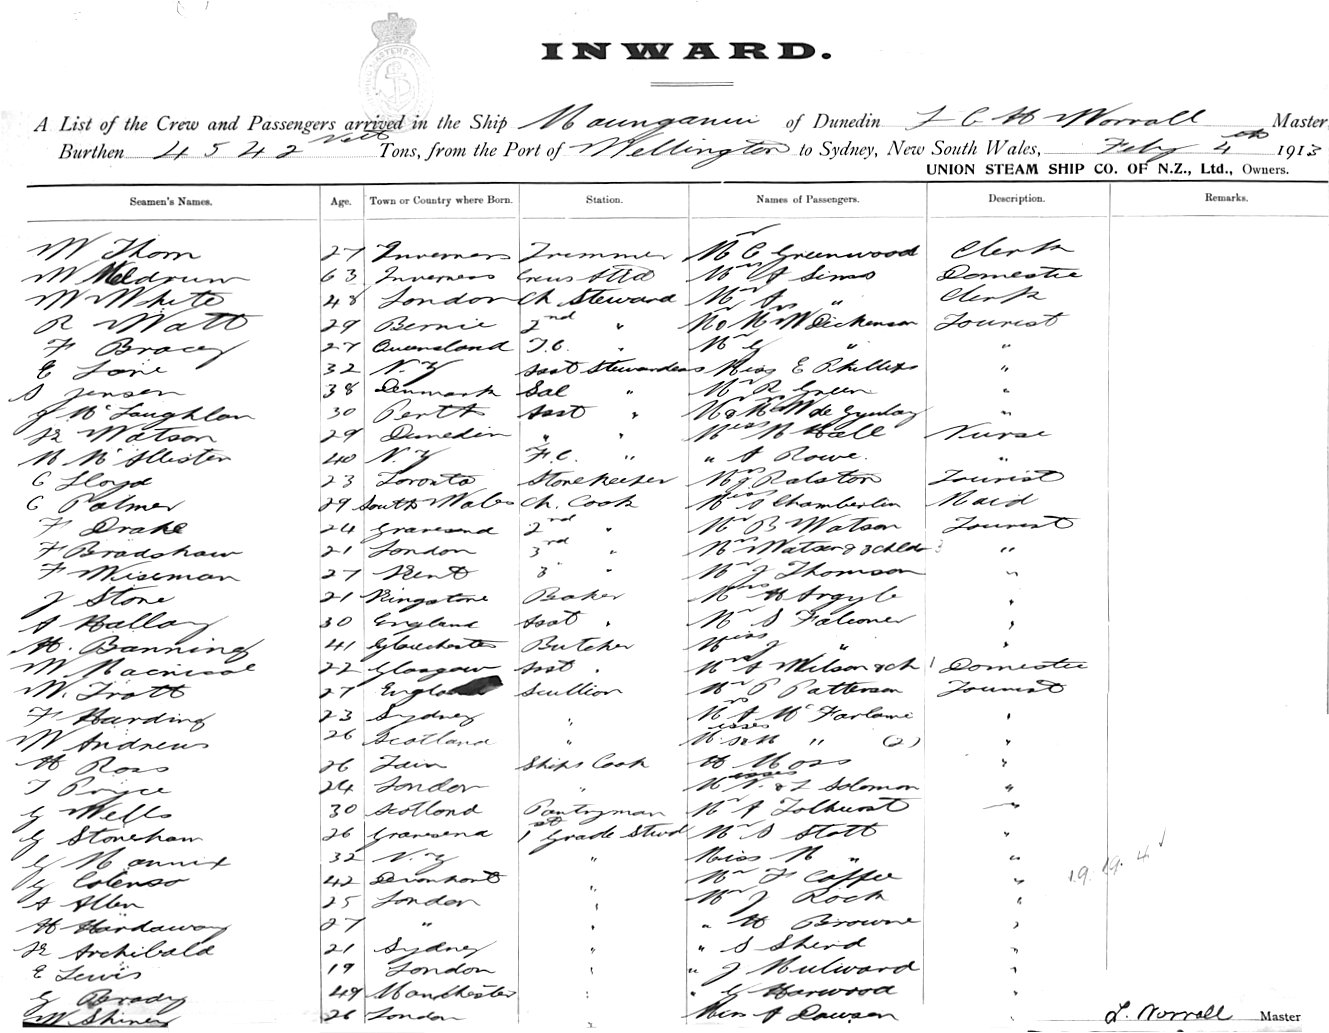 INWARD.
A List of the Crew and Passengers arrived in the Ship Maunganui of Dunedin L C H Worrall Master
Burthen 4542 Nett Tons, from the Port of Wellington to Sydney, New South Wales, Feby 4th 1913
UNION STEAM SHIP CO. OF N.Z., Ltd., Owners.
Seamen's Names. Age. Town or Country where Born. Station. Names of Passengers. Description. Remarks.
W Thom 27 Inverness Trimmer Mr C Greenwood Clerk
W Meldrum 63 Inverness Crews Attd Mrs A Sims Domestic
W White 48 London Ch Steward Mr A " Clerk
R Watt 29 Bernie 2nd " Mr & Mrs W Dickenson Tourist
F Bracey 27 Queensland T.C. " Mr G " "
E Lane 32 N.Z Asst Stewardess Miss E Phillips "
S Jensen 38 Denmark Sal " Mr R Green "
J McLaughlan 30 Perth Asst " Mr & Mrs W de Gyulay "
R Watson 29 Dunedin " " Miss M Hall Nurse
M McAllister 40 N.Z F.C. " " A Rowe. "
C Lloyd 23 Toronto Storekeeper Mr J Ralston Tourist
C Palmer 29 South Wales Ch. Cook Miss A Chamberlin Maid
F Drake 24 Gravesend 2nd " Mr B Watson Tourist
F Bradshaw 21 London 3rd " Mrs Watson & 3 chldn 3 "
F Wiseman 27 Kent 3 " " Mr J Thomson "
J Stone 21 Kingstone Baker Mrs H Argyle "
A Hallay 30 England Asst " Mr S Falconer "
H. Banning 41 Gloucester Butcher Miss J " "
W Macnicol 22 Glasgow Asst " Mrs A Wilson & ch 1 Domestic
W. Trott 27 England Scullion Mr P Patterson Tourist
F Harding 23 Sydney " Mrs A McFarlane "
W Andrews 26 Scotland " Misses " (2) "
H Ross 26 Tain Ships Cook H Moss "
T Pryce 24 London " Misses V. & L Solomon "
G Wells 30 Scotland Pantryman Mr A Tolhurst "
G Stoneham 26 Gravesend 1st Grade Stwd Mr S Stott "
G Mannix 32 N.Z " Miss M " "
G Colenso 42 Devonport " Mr F Coffee " 19.19.4
A Allen 25 London " Mr J Rock "
H Hardaway 27 " " " H Browne "
R Archibald 21 Sydney " " S Sherd "
E Lewis 19 London " " J Mulward "
G Brady 49 Manchester " " G Harwood "
W Shiner 26 London Miss A Dawson " L. Worrall Master